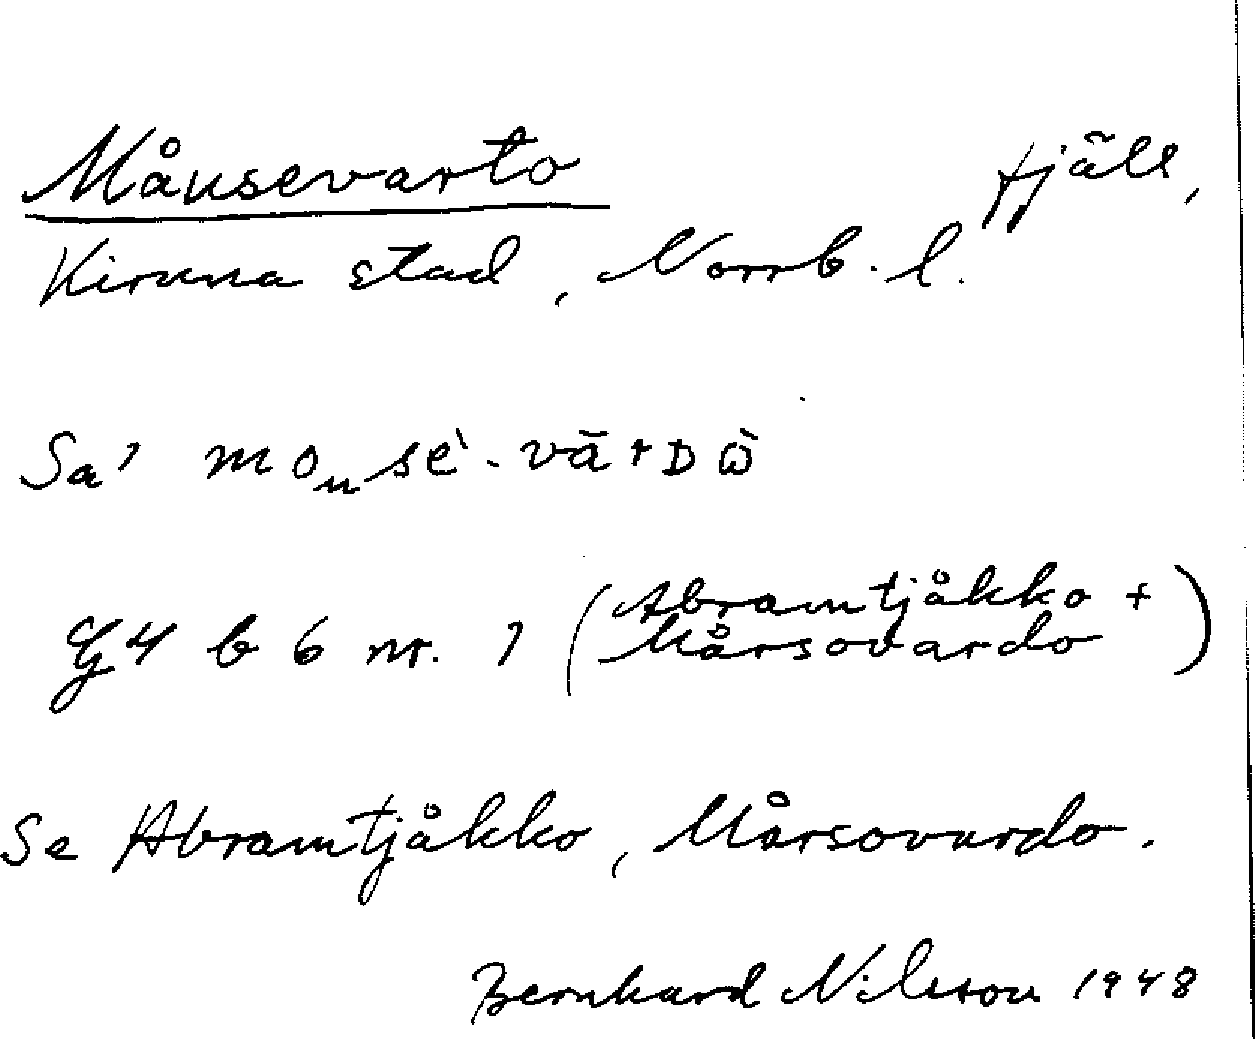 Månsevarto fjäll,
Kiruna stad, Norrb. l.
Sa' moᵤsè-vārᴅὼ
G4 b 6 nr. 1 (Abramtjåkko +
Mårsovardo)
Se Abramtjåkko, Mårsovardo.
Bernhard Nilsson 1948